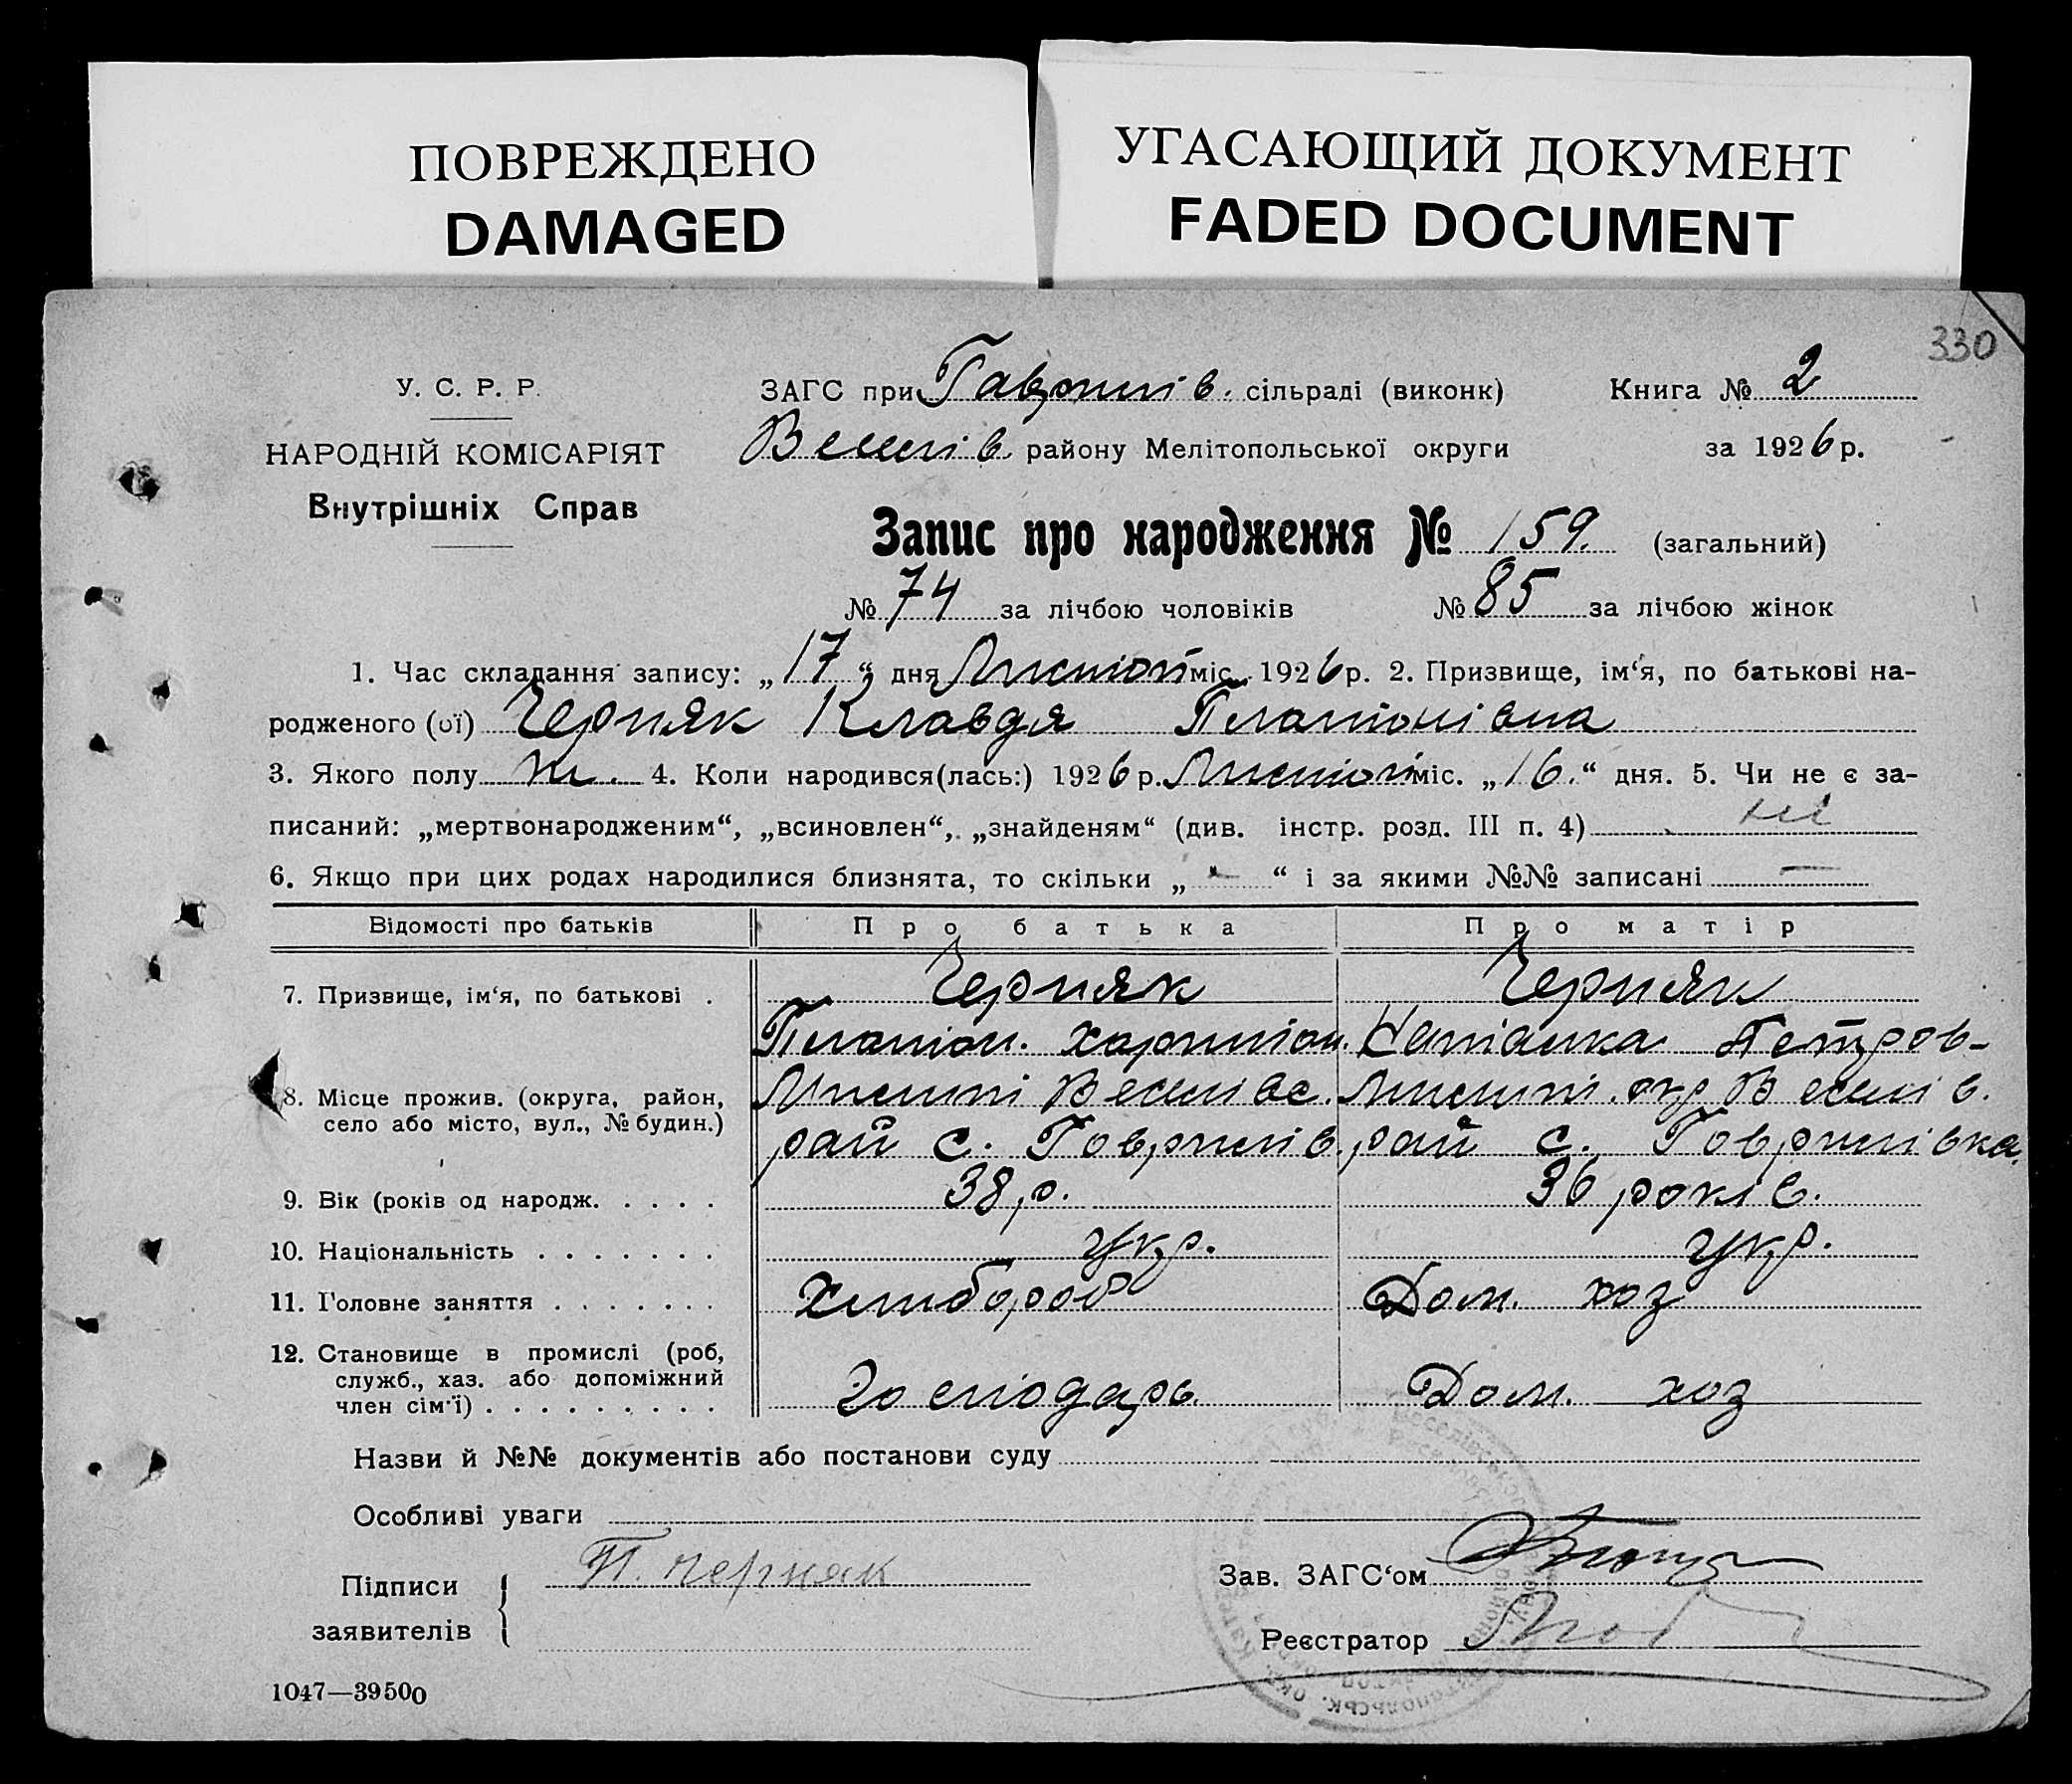 ПОВРЕЖДЕНО
DAMAGED
УГАСАЮЩИЙ ДОКУМЕНТ
FADED DOCUMENT
330
У. С. Р. Р.
НАРОДНІЙ КОМІСАРІЯТ
Внутрішніх Справ
ЗАГС при Гаврилів. сільраді (виконк)
Книга № 2
Веселів району Мелітопольської округи
за 1926 р.
Запис про народження № 159. (загальний)
№ 74 за лічбою чоловіків № 85 за лічбою жінок
1. Час складання запису: „17“ дня Листоп міс. 1926 р. 2. Призвище, ім‘я, по батькові на-
родженого (ої) Черняк Клавдя Платонівна
3. Якого полу ж. 4. Коли народився(лась:) 1926 р. Листоп міс. „16.“ дня. 5. Чи не є за-
писаний: „мертвонародженим“, „всиновлен“, „знайденям“ (див. інстр. розд. III п. 4) ні
6. Якщо при цих родах народилися близнята, то скільки „-“ і за якими №№ записані —
Відомості про батьків Про батька Про матір
7. Призвище, ім‘я, по батькові . Черняк Черняк
Платон. Харитон. Петров-
8. Місце прожив. (округа, район, село або місто, вул., № будин.)
Веселівс. окр Веселів.
рай с. Гаврилів. рай с. Гаврилівка.
9. Вік (років од народж. . . . . 38 р. 36 років.
10. Національність . . . . . . . укр. укр.
11. Головне заняття . . . . . . . Хлибороб Дом. хоз
12. Становище в промислі (роб,
служб., хаз. або допоміжний
член сім‘ї) . . . . . . . . . господарь. Дом. хоз
Назви й №№ документів або постанови суду
Особливі уваги
Підписи
заявителів
П. Черняк
Зав. ЗАГС‘ом
Реєстратор
1047—39500